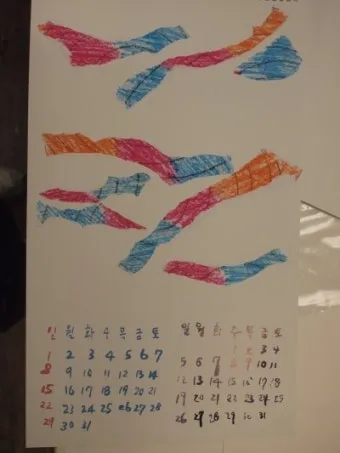 일 월 화 수 목 금 토
1 2 3 4 5 6 7
8 9 10 11 12 13 14
15 16 17 18 19 20 21
22 23 24 25 26 27 28
29 30 31
일 월 화 수 목 금 토
1 2 3 4
5 6 7 8 9 10 11
12 13 14 15 16 17 18
19 20 21 22 23 24 25
26 27 28 29 30 31